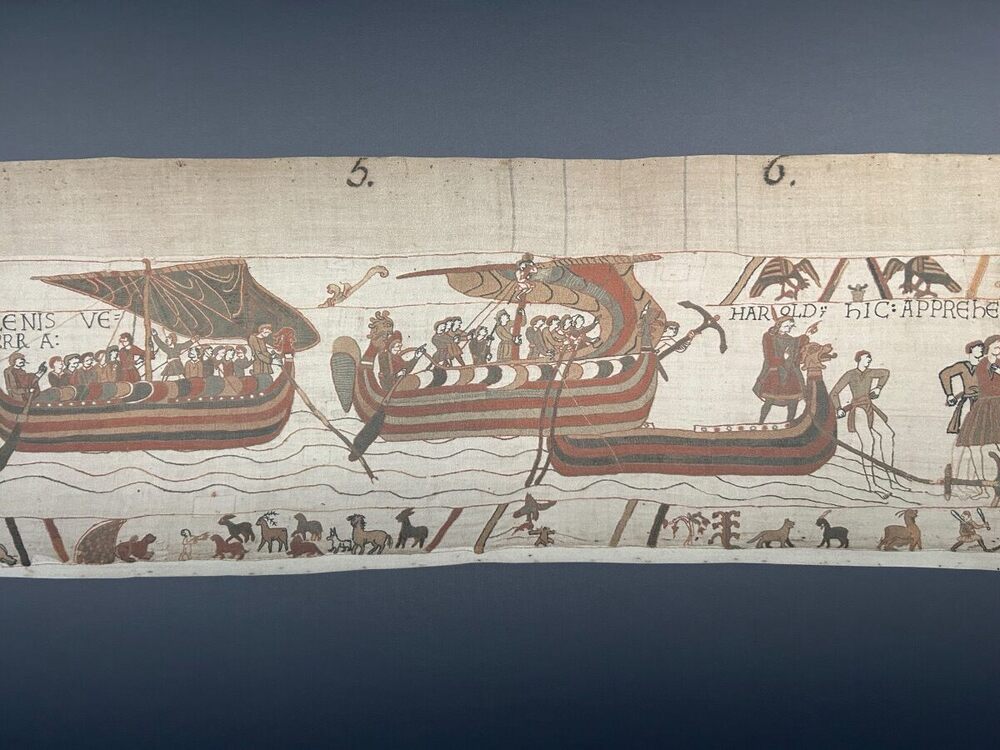 5.
6.
ENIS VE=
RRA:
HAROLD; hIC: APPREhE